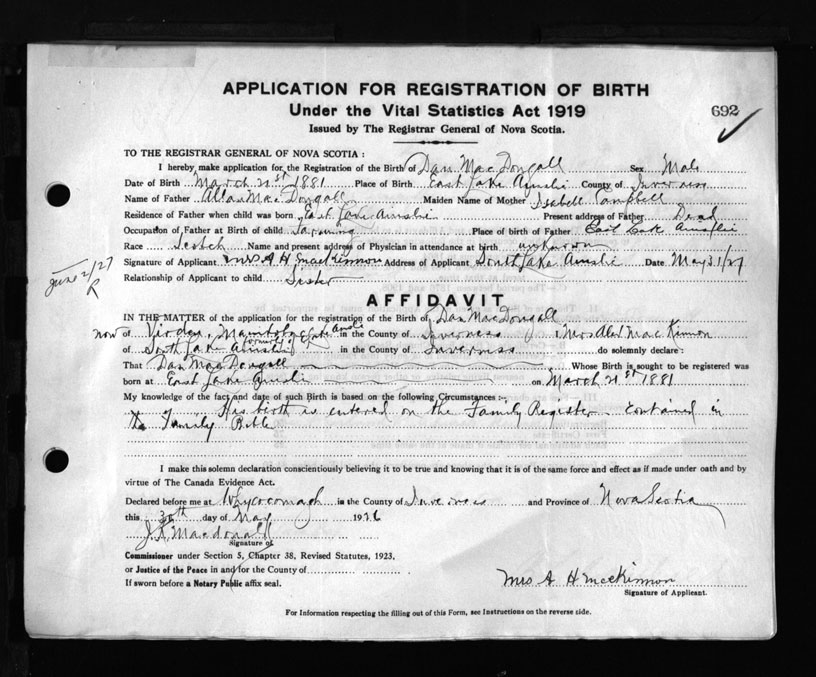 APPLICATION FOR REGISTRATION OF BIRTH
Under the Vital Statistics Act 1919
692
Issued by The Registrar General of Nova Scotia.
TO THE REGISTRAR GENERAL OF NOVA SCOTIA :
I hereby make application for the Registration of the Birth of Dan MacDougall Sex Male
Date of Birth March 21st 1881 Place of Birth East Lake Ainslie County of Inverness
Name of Father Allan MacDougall Maiden Name of Mother Isabell Campbell
Residence of Father when child was born East Lake Ainslie Present address of Father Dead
Occupation of Father at Birth of child Farming Place of birth of Father East Lake Ainslie
Race Scotch Name and present address of Physician in attendance at birth unknown
Signature of Applicant Mrs A H MacKinnon Address of Applicant South Lake Ainslie Date May 31/27
June 2/27
R
Relationship of Applicant to child Sister
AFFIDAVIT
IN THE MATTER of the application for the registration of the Birth of Dan MacDougall
now of Virden, Manitoba formerly of E Lake Ainslie in the County of Inverness I, Mrs Alex MacKinnon
of South Lake Ainslie in the County of Inverness do solemnly declare :
That Dan MacDougall Whose Birth is sought to be registered was
born at East Lake Ainslie on March 21st 1881
My knowledge of the fact and date of such Birth is based on the following Circumstances :-
His birth is entered on the Family Register contained in
the Family Bible
I make this solemn declaration conscientiously believing it to be true and knowing that it is of the same force and effect as if made under oath and by
virtue of The Canada Evidence Act.
Declared before me at Whycocomagh in the County of Inverness and Province of Nova Scotia
this 30th day of May
J. Macdonald
Signature of
Commissioner under Section 5, Chapter 38, Revised Statutes, 1923,
or Justice of the Peace in and for the County of
If sworn before a Notary Public affix seal.
Mrs A H MacKinnon
Signature of Applicant.
For Information respecting the filling out of this Form, see Instructions on the reverse side.